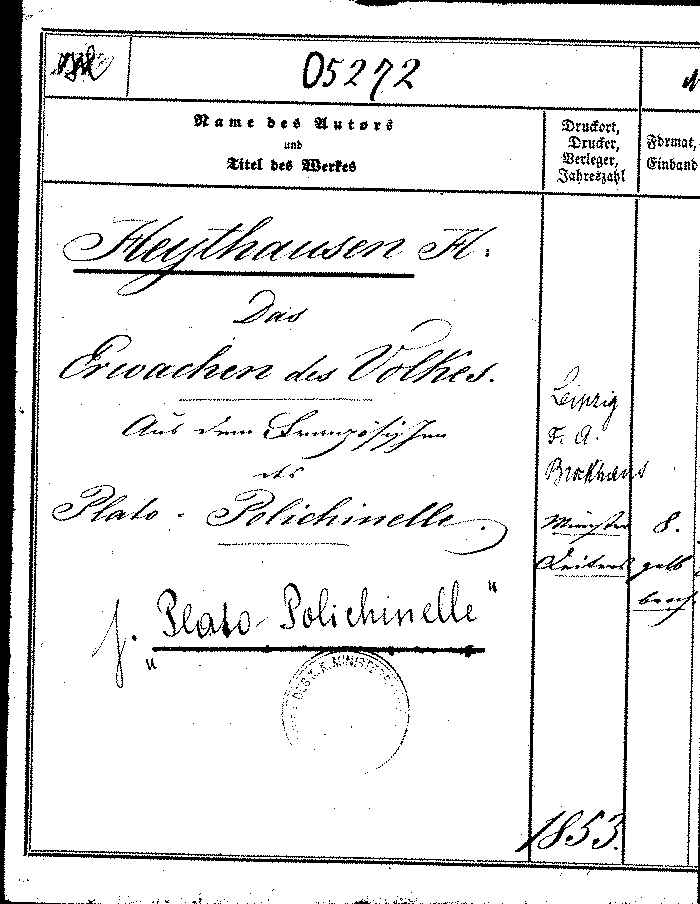 05272
Name des Autors
und
Titel des Werkes
Druckort,
Drucker,
Verleger,
Jahreszahl
Format,
Einband
Heythausen H.
Das
Erwachen des Volkes.
Aus dem Französischen
des
Plato-Polichinelle.
Leipzig
F. A.
Brockhaus
Münster
8.
gelb
brosch
s. "Plato-Polichinelle"
K. K. MINISTE
1853.